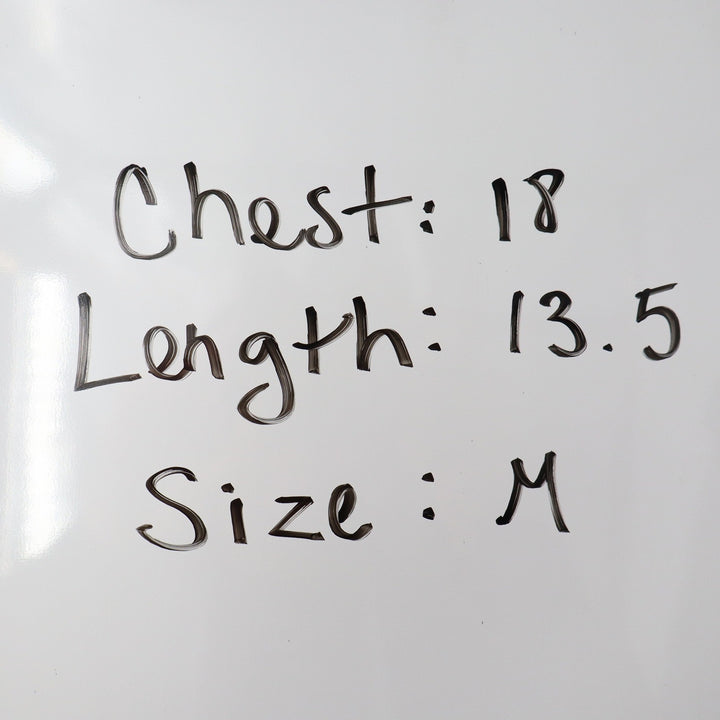 Chest: 18
Length: 13.5
Size: M